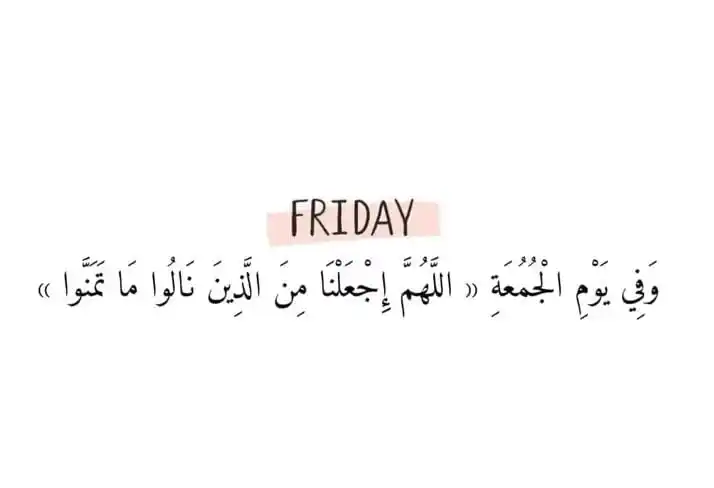 FRIDAY
وَفِي يَوْمِ الْجُمُعَةِ « اللَّهُمَّ إِجْعَلْنَا مِنَ الَّذِينَ نَالُوا مَا تَمَنَّوا »